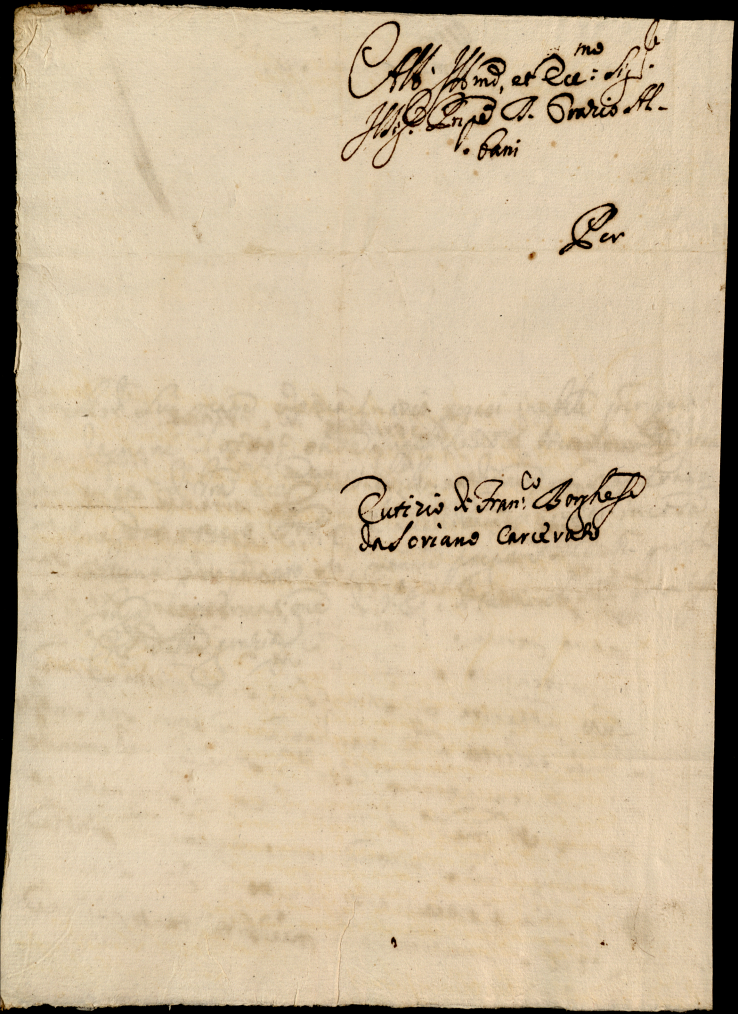 All' Ill.mo, et Ecc.mo Sig.re
Il Sig.r Prnpe D. Orazio Al-
bani
Per
Eutizio di Fran.co Borghesi
da Soriano Carcerato